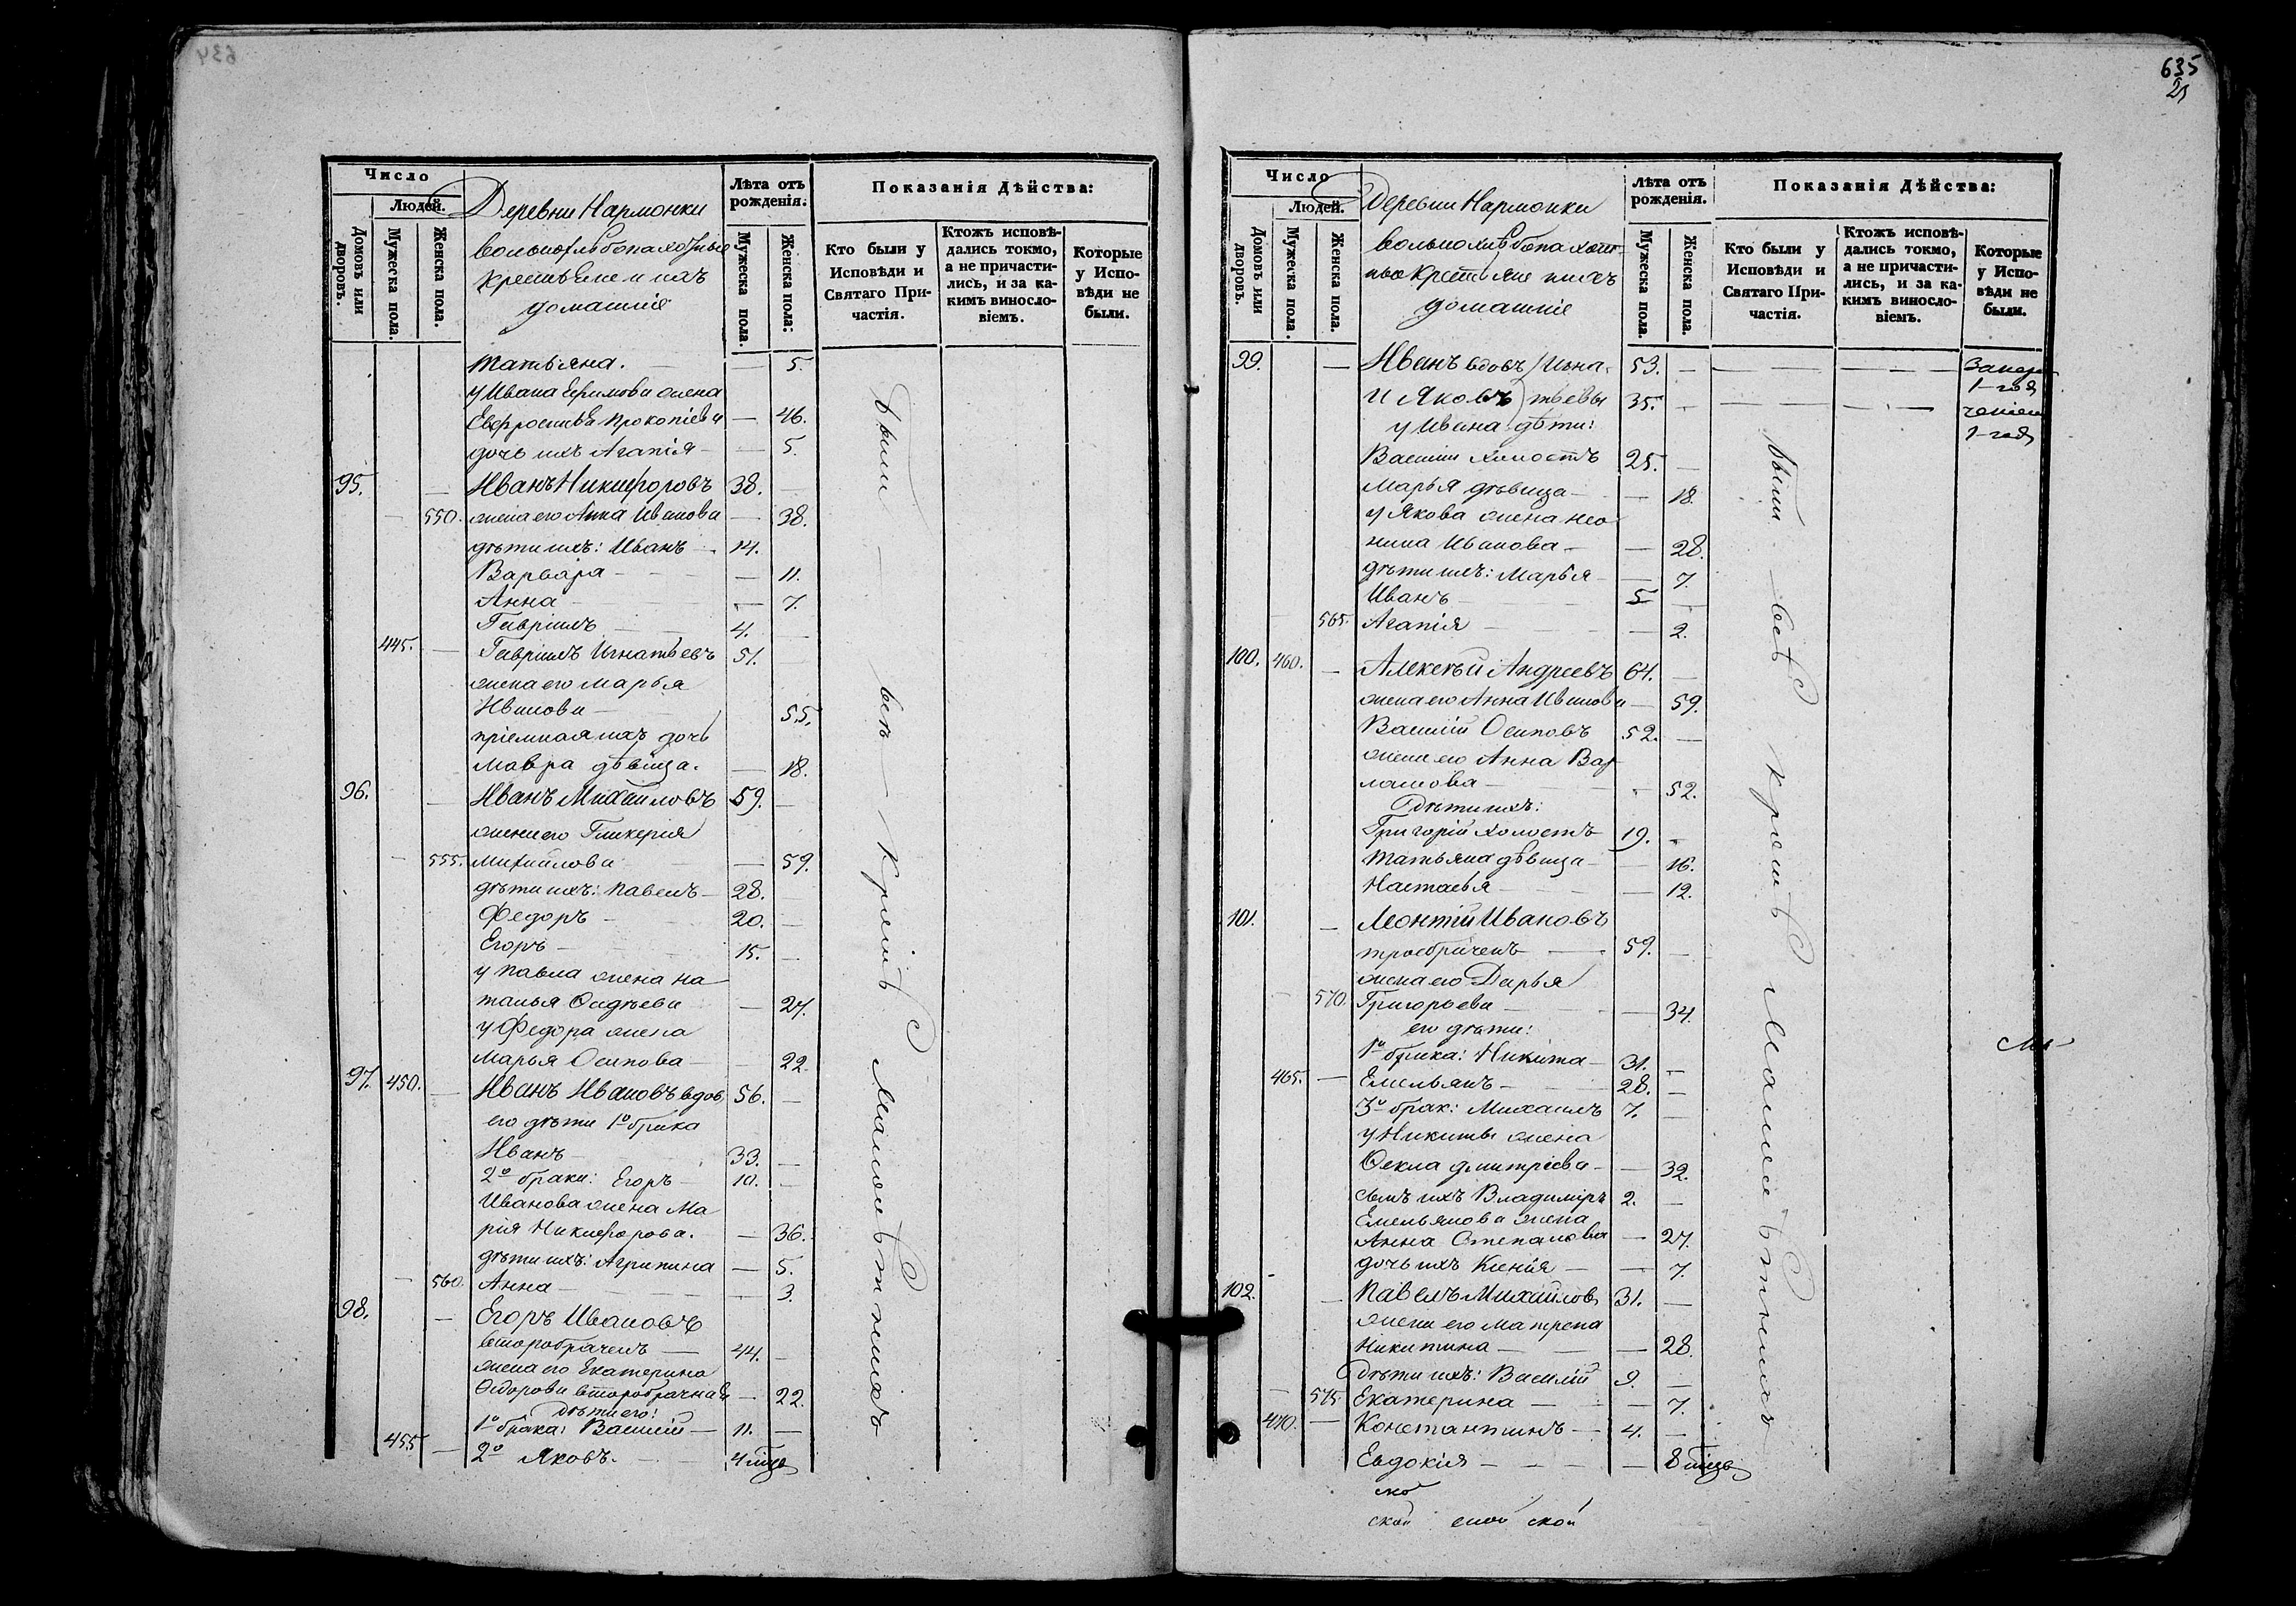 634
Число
Людей.
Домовъ или дворовъ.
Мужеска пола.
Женска пола.
Деревни Нармонки
вольнохлѣбопахотные
крестьяне и ихъ
домашніе
Лѣта отъ рожденія.
Мужеска пола.
Женска пола:
Показанія Дѣйства:
Кто были у Исповѣди и Святаго Причастія.
Ктожъ исповѣдались токмо, а не причастились, и за какимъ винословіемъ.
Которые у Исповѣди не были.
Татьяна. — 5.
у Ивана Ефимова жена
Евфросинья Прокопіева — 46.
дочь ихъ Агапія — 5.
95. — Иванъ Никифоровъ 38. —
— 550. жена его Анна Иванова — 38.
дѣти ихъ: Иванъ — 14.
Варвара — 11.
Анна — 7.
Гавріилъ 4. —
445. — Гавріилъ Игнатьевъ 51. —
жена его Марья
Иванова — 55.
пріемная ихъ дочь
Мавра дѣвица. — 18.
96. — Иванъ Михайловъ 59. —
жена его Гликерія
— 555. Михайлова — 59.
дѣти ихъ: Павелъ — 28. —
Федоръ — 20. —
Егоръ — 15. —
у Павла жена На
талья Фадѣева — 27.
у Федора жена
Марья Осипова — 22.
97. 450. — Иванъ Ивановъ вдов 56. —
его дѣти 1º брака
Иванъ — 33. —
2º брака: Егоръ — 10. —
Иванова жена Ма
рія Никифорова. — 36.
дѣти ихъ: Агрипина — 5.
— 560. Анна — 3.
98. — Егоръ Ивановъ
второбраченъ — 44. —
жена его Екатерина
Федорова второбрачная — 22.
Дѣти его:
1º брака: Василій — 11. —
455. — 2º Яковъ. — 4 мѣс
были — всѣ — кромѣ малолѣтнихъ
635
21
Число
Людей.
Домовъ или дворовъ.
Мужеска пола
Женска пола.
Деревни Нармонки
вольнохлѣбопахот-
ные крестьяне и ихъ
домашніе
Лѣта отъ рожденія.
Мужеска пола.
Женска пола.
Показанія Дѣйства:
Кто были у Исповѣди и Святаго Причастія.
Ктожъ исповѣдались токмо, а не причастились, и за какимъ винословіемъ.
Которые у Исповѣди не были.
99. — Иванъ вдовъ Игна- 53. —
1-год
и Яковъ тьевы 35. —
1-год
у Ивана дѣти:
Василій холостъ 25. —
Марья дѣвица — 18.
у Якова жена Нео
нила Иванова — 28.
дѣти ихъ: Марья — 7.
Иванъ — 5 —
565. Агапія — 2.
100. 460. — Алексѣй Андреевъ 64. —
жена его Анна Иванова — 59.
Василій Осиповъ 52. —
жена его Анна Вар
ламова — 52.
Дѣти ихъ:
Григорій холостъ 19. —
Татьяна дѣвица — 16.
Настасья — 12.
101. — Леонтій Ивановъ
троебраченъ — 59. —
жена его Дарья
— 570. Григорьева — 34.
его дѣти:
1º брака: Никита — 31. —
465. — Емельянъ — 28. —
3º брак: Михаилъ 7. —
у Никиты жена
Фекла Дмитріева — 32.
сынъ ихъ Владиміръ 2. —
Емельянова жена
Анна Степанова — 27.
дочь ихъ Ксенія — 7.
102. — Павелъ Михайловъ 31. —
жена его Матрена
Никитина — 28.
Дѣти ихъ: Василій 9. —
— 575. Екатерина — 7.
470. — Константинъ — 4. —
Евдокія — 8 мѣс
были — всѣ кромѣ малолѣтнихъ
ско
ской ской ской